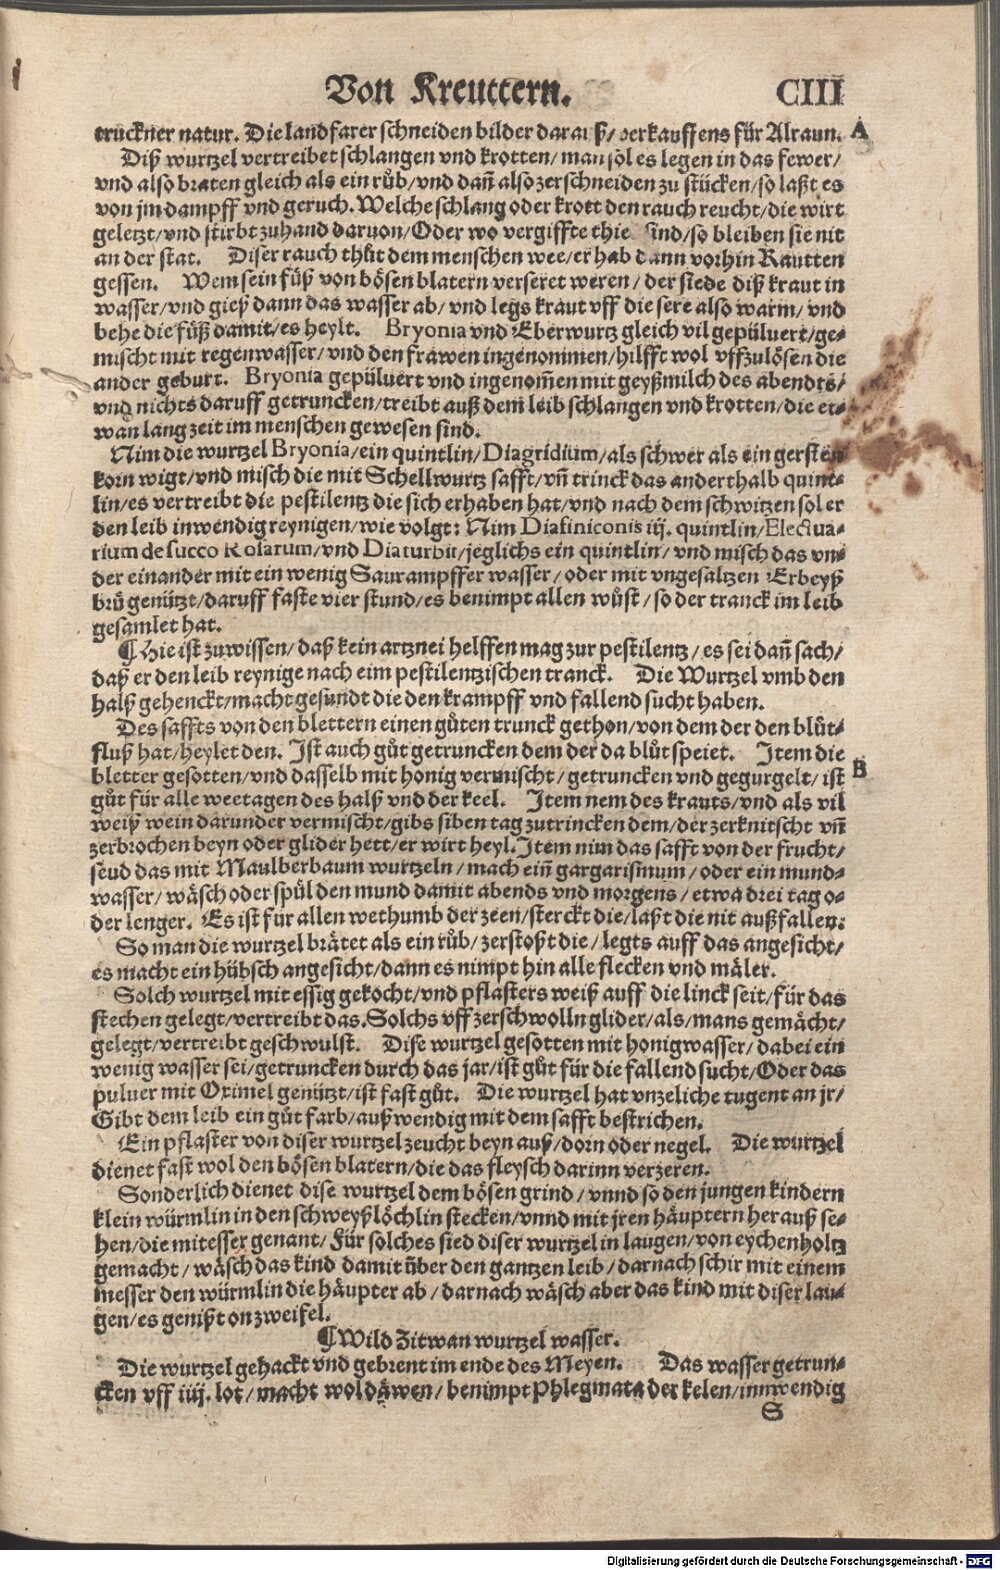 Von Kreuttern. CIII
truckner natur. Die landfarer schneiden bilder darauß/ verkauffens für Alraun. A
Diß wurtzel vertreibet schlangen vnd krotten/ man sol es legen in das fewer/
vnd also braten gleich als ein růb/ vnd dañ also zerschneiden zu stücken/ so laßt es
von jm dampff vnd geruch. Welche schlang oder krott den rauch reucht/ die wirt
geletzt/ vnd stirbt zuhand daruon/ Oder wo vergiffte thie sind/ so bleiben sie nit
an der stat. Diser rauch thůt dem menschen wee/ er hab dann vorhin Rautten
gessen. Wem sein füß von bösen blatern verseret weren/ der siede diß kraut in
wasser/ vnd gieß dann das wasser ab/ vnd legs kraut vff die sere also warm/ vnd
behe die füß damit/ es heylt. Bryonia vnd Eberwurtz gleich vil gepüluert/ ge⸗
mischt mit regenwasser/ vnd den frawen ingenommen/ hilfft wol vffzulösen die
ander geburt. Bryonia gepüluert vnd ingenom̃en mit geyßmilch des abendts/
vnd nichts daruff getruncken/ treibt auß dem leib schlangen vnd krotten/ die et⸗
wan lang zeit im menschen gewesen sind.
Nim die wurtzel Bryonia/ ein quintlin/ Diagridium/ als schwer als ein gersten
korn wigt/ vnd misch die mit Schellwurtz safft/ vñ trinck das anderthalb quint⸗
lin/ es vertreibt die pestilentz die sich erhaben hat/ vnd nach dem schwitzen sol er
den leib inwendig reynigen/ wie volgt: Nim Diafiniconis iij. quintlin/ Electua⸗
rium de succo Rosarum/ vnd Diaturbit/ jeglichs ein quintlin/ vnd misch das vn⸗
der einander mit ein wenig Saurampffer wasser/ oder mit vngesaltzen Erbeyß
brů genützt/ daruff faste vier stund/ es benimpt allen wůst/ so der tranck im leib
gesamlet hat.
¶ Hie ist zuwissen/ daß kein artznei helffen mag zur pestilentz/ es sei dañ sach/
daß er den leib reynige nach eim pestilentzischen tranck. Die Wurtzel vmb den
halß gehenckt/ macht gesundt die den krampff vnd fallend sucht haben.
Des saffts von den blettern einen gůten trunck gethon/ von dem der den blůt⸗
fluß hat/ heylet den. Ist auch gůt getruncken dem der da blůt speiet. Item die
bletter gesotten/ vnd dasselb mit honig vermischt/ getruncken vnd gegurgelt/ ist B
gůt für alle weetagen des halß vnd der keel. Item nem des krauts/ vnd als vil
weiß wein darunder vermischt/ gibs siben tag zutrincken dem/ der zerknitscht vñ
zerbrochen beyn oder glider hett/ er wirt heyl. Item nim das safft von der frucht/
seud das mit Maulberbaum wurtzeln/ mach eiñ gargarismum/ oder ein mund⸗
wasser/ wäsch oder spül den mund damit abends vnd morgens/ etwa drei tag o⸗
der lenger. Es ist für allen wethumb der zeen/ sterckt die/ laßt die nit außfallen.
So man die wurtzel brätet als ein růb/ zerstoßt die/ legts auff das angesicht/
es macht ein hübsch angesicht/ dann es nimpt hin alle flecken vnd mäler.
Solch wurtzel mit essig gekocht/ vnd pflasters weiß auff die linck seit/ für das
stechen gelegt/ vertreibt das. Solchs vff zerschwolln glider/ als/ mans gemächt/
gelegt/ vertreibt geschwulst. Dise wurtzel gesotten mit honigwasser/ dabei ein
wenig wasser sei/ getruncken durch das jar/ ist gůt für die fallend sucht/ Oder das
puluer mit Oximel genützt/ ist fast gůt. Die wurtzel hat vnzeliche tugent an jr/
Gibt dem leib ein gůt farb/ außwendig mit dem safft bestrichen.
Ein pflaster von diser wurtzel zeucht beyn auß/ dorn oder negel. Die wurtzel
dienet fast wol den bösen blatern/ die das fleysch darinn verzeren.
Sonderlich dienet dise wurtzel dem bösen grind/ vnnd so den jungen kindern
klein würmlin in den schweyßlöchlin stecken/ vnnd mit jren häuptern herauß se⸗
hen/ die mitesser genant/ Für solches sied diser wurtzel in laugen/ von eychen holtz
gemacht/ wäsch das kind damit über den gantzen leib/ darnach schir mit einem
messer den würmlin die häupter ab/ darnach wäsch aber das kind mit diser lau⸗
gen/ es genißt on zweifel.
¶ Wild Zitwan wurtzel wasser.
Die wurtzel gehackt vnd gebrent im ende des Meyen. Das wasser getrun⸗
cken vff iiij. lot/ macht wol däwen/ benimpt Phlegmata der kelen/ innwendig
S
Digitalisierung gefördert durch die Deutsche Forschungsgemeinschaft - DFG